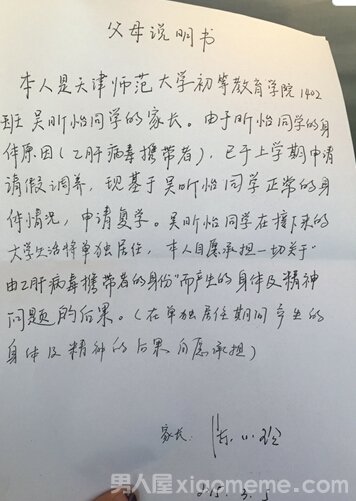 父母说明书
本人是天津师范大学初等教育学院1402
班吴昕怡同学的家长。由于昕怡同学的身
体原因（乙肝病毒携带者），已于上学期申请
请假调养，现基于吴昕怡同学正常的身
体情况，申请复学。吴昕怡同学在接下来的
大学生活将单独居住，本人自愿承担一切关于"
由乙肝病毒携带者的身份"而产生的身体及精神
问题的后果。（在单独居住期间产生的
身体及精神的后果自愿承担）
家长：陈小玲
男人屋xiaomeme.com